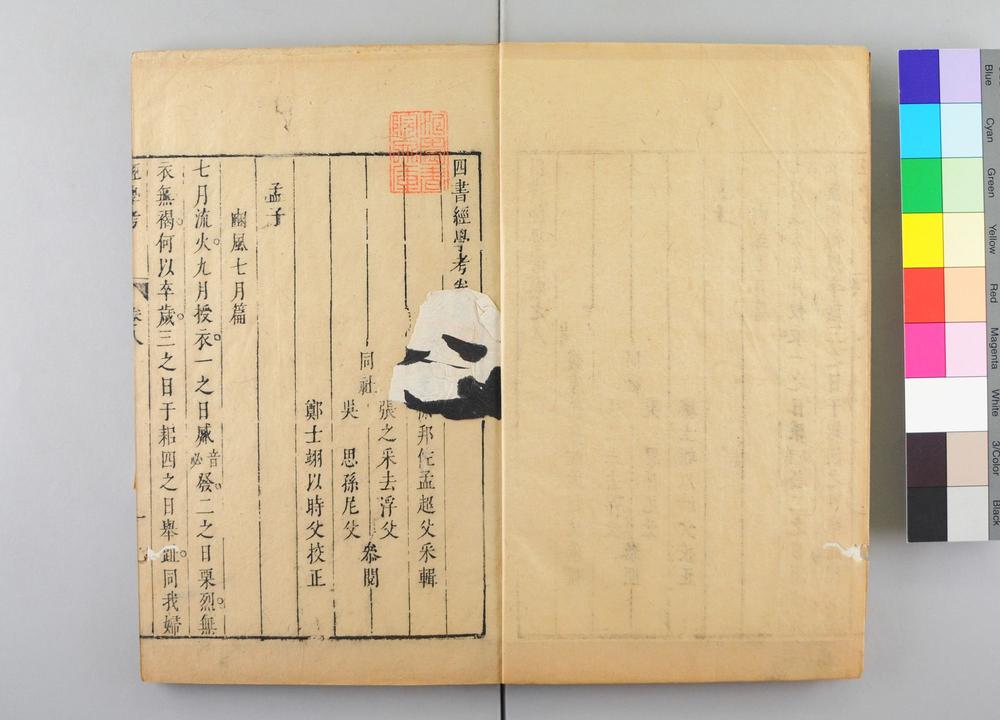 四書經學考
邦佐孟超父采輯
張之采去浮父
同社
吳 思孫尼父
叅閱
鄭士翊以時父校正
孟子
豳風七月篇
七月流火九月授衣一之日觱音必發二之日栗烈無
衣無褐何以卒歲三之日于耜四之日舉趾同我婦
經學考 卷八 一
Blue
Cyan
Green
Yellow
Red
Magenta
White
3/Color
Black